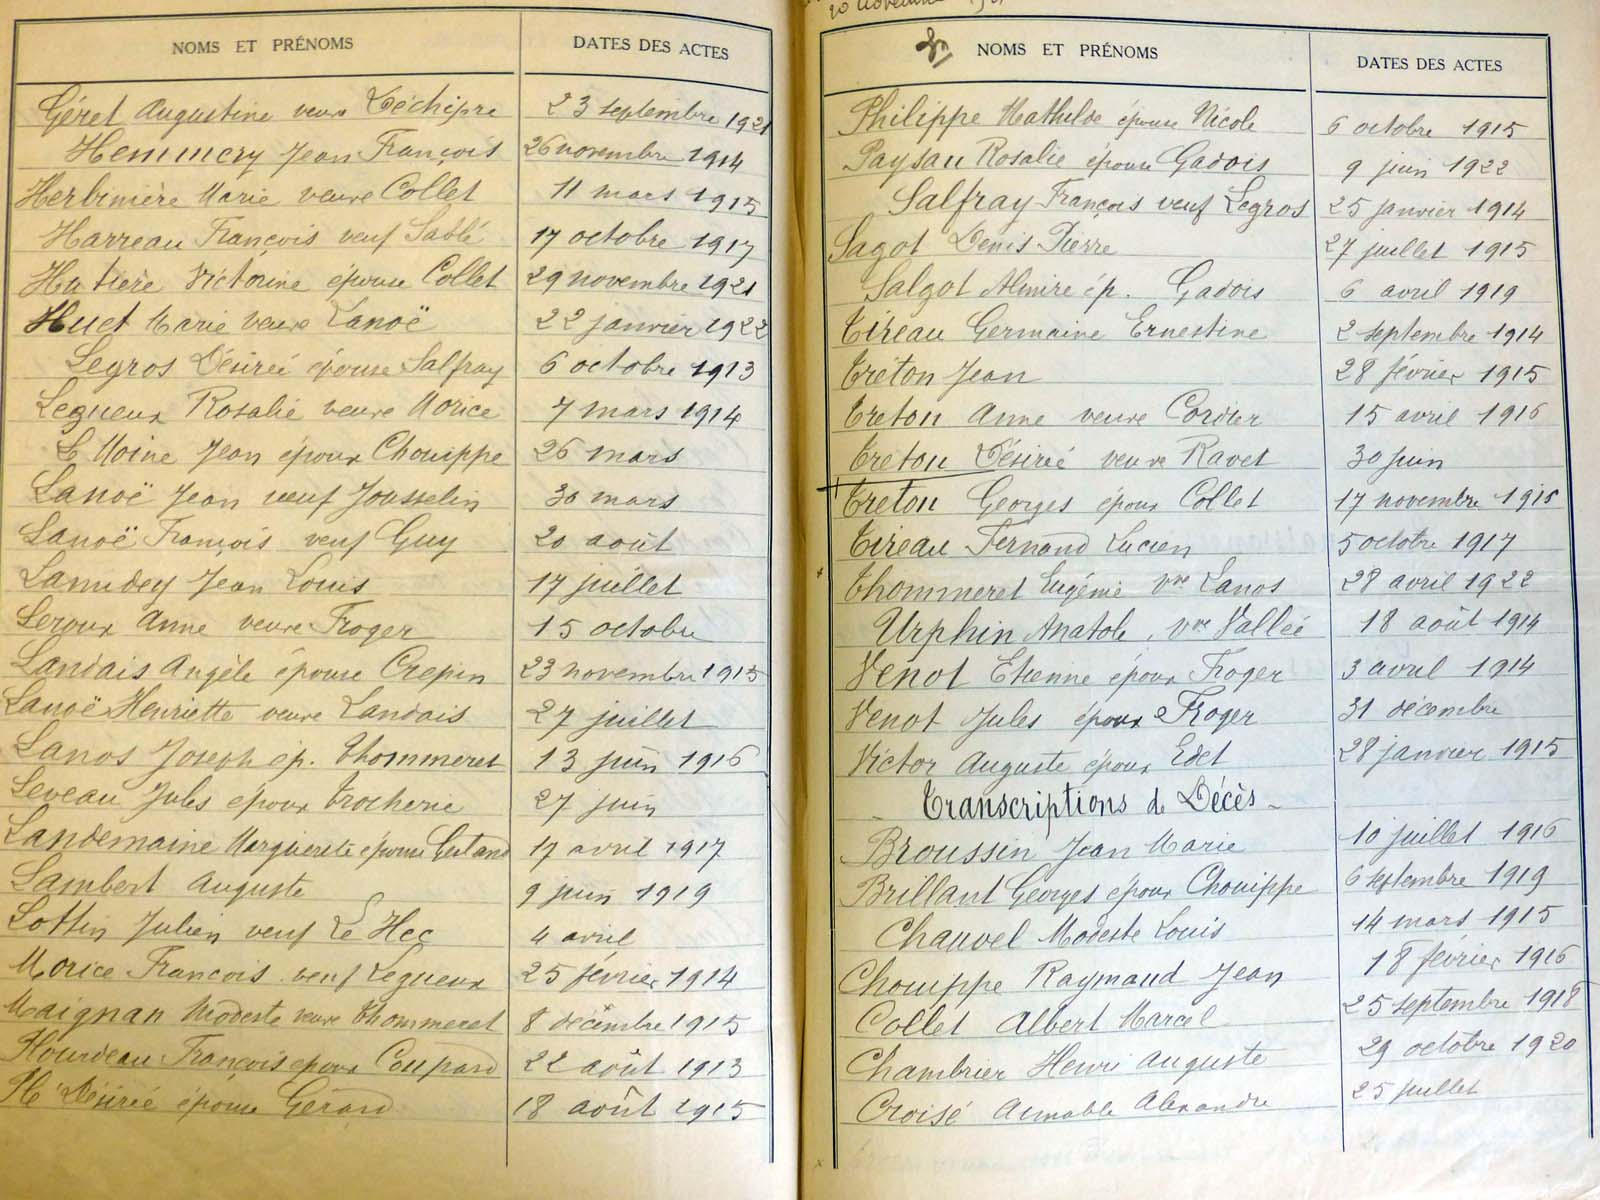 NOMS ET PRÉNOMS DATES DES ACTES
Géret Augustine veuve Déchipre 23 septembre 1921
Hemmery Jean François 26 novembre 1914
Herbinière Marie veuve Collet 11 mars 1915
Harreau François veuf Sablé 17 octobre 1917
Hatière Victorine épouse Collet 29 novembre 1921
Huet Marie veuve Lanoë 22 janvier 1922
Legros Désirée épouse Salfray 6 octobre 1913
Legueux Rosalie veuve Morice 7 mars 1914
Le Moine Jean époux Chouippe 26 mars
Lanoë Jean veuf Jousselin 30 mars
Lanoë François veuf Guy 20 août
Jean Louis 17 juillet
Leroux Anne veuve Froger 15 octobre
Landais Angèle épouse Crepin 23 novembre 1915
Lanoë Henriette veuve Landais 27 juillet
Lanos Joseph ép. Thommeret 13 juin 1916
Leveau Jules époux Trocherie 27 juin
Landemaine Marguerite épouse 17 avril 1917
Lambert Auguste 9 juin 1919
Lottin Julien veuf Le Hec 4 avril
Morice François veuf Legueux 25 février 1914
Maignan Modeste veuve Thommeret 8 décembre 1915
Hourdeau François époux Coupard 22 août 1913
Désirée épouse Gérard 18 août 1915
20 novembre
NOMS ET PRÉNOMS DATES DES ACTES
Philippe Mathilde épouse Nicole 6 octobre 1915
Paysan Rosalie épouse Gadois 9 juin 1922
Salfray François veuf Legros 25 janvier 1914
Sagot Denis Pierre 27 juillet 1915
Salgot Almire ép. Gadois 6 avril 1919
Tireau Germaine Ernestine 2 septembre 1914
Tréton Jean 28 février 1915
Treton Anne veuve Cordier 15 avril 1916
Treton Désirée veuve Ravet 30 juin
Treton Georges époux Collet 17 novembre 1916
Tireau Fernand Lucien 5 octobre 1917
Thommeret Eugénie vve Lanos 28 avril 1922
Urphin Anatole, vve Vallée 18 août 1914
Venot Etienne époux Froger 3 avril 1914
Venot Jules époux Froger 31 décembre
Victor Auguste époux Edet 28 janvier 1915
Transcriptions de Décès -
Broussin Jean Marie 10 juillet 1916
Brillant Georges époux Chouippe 6 septembre 1919
Chauvel Modeste Louis 14 mars 1915
Chouippe Raymaud Jean 18 février 1916
Collet Albert Marcel 25 septembre 1918
Chambrier Henri Auguste 29 octobre 1920
Croisé Aimable Alexandre 25 juillet